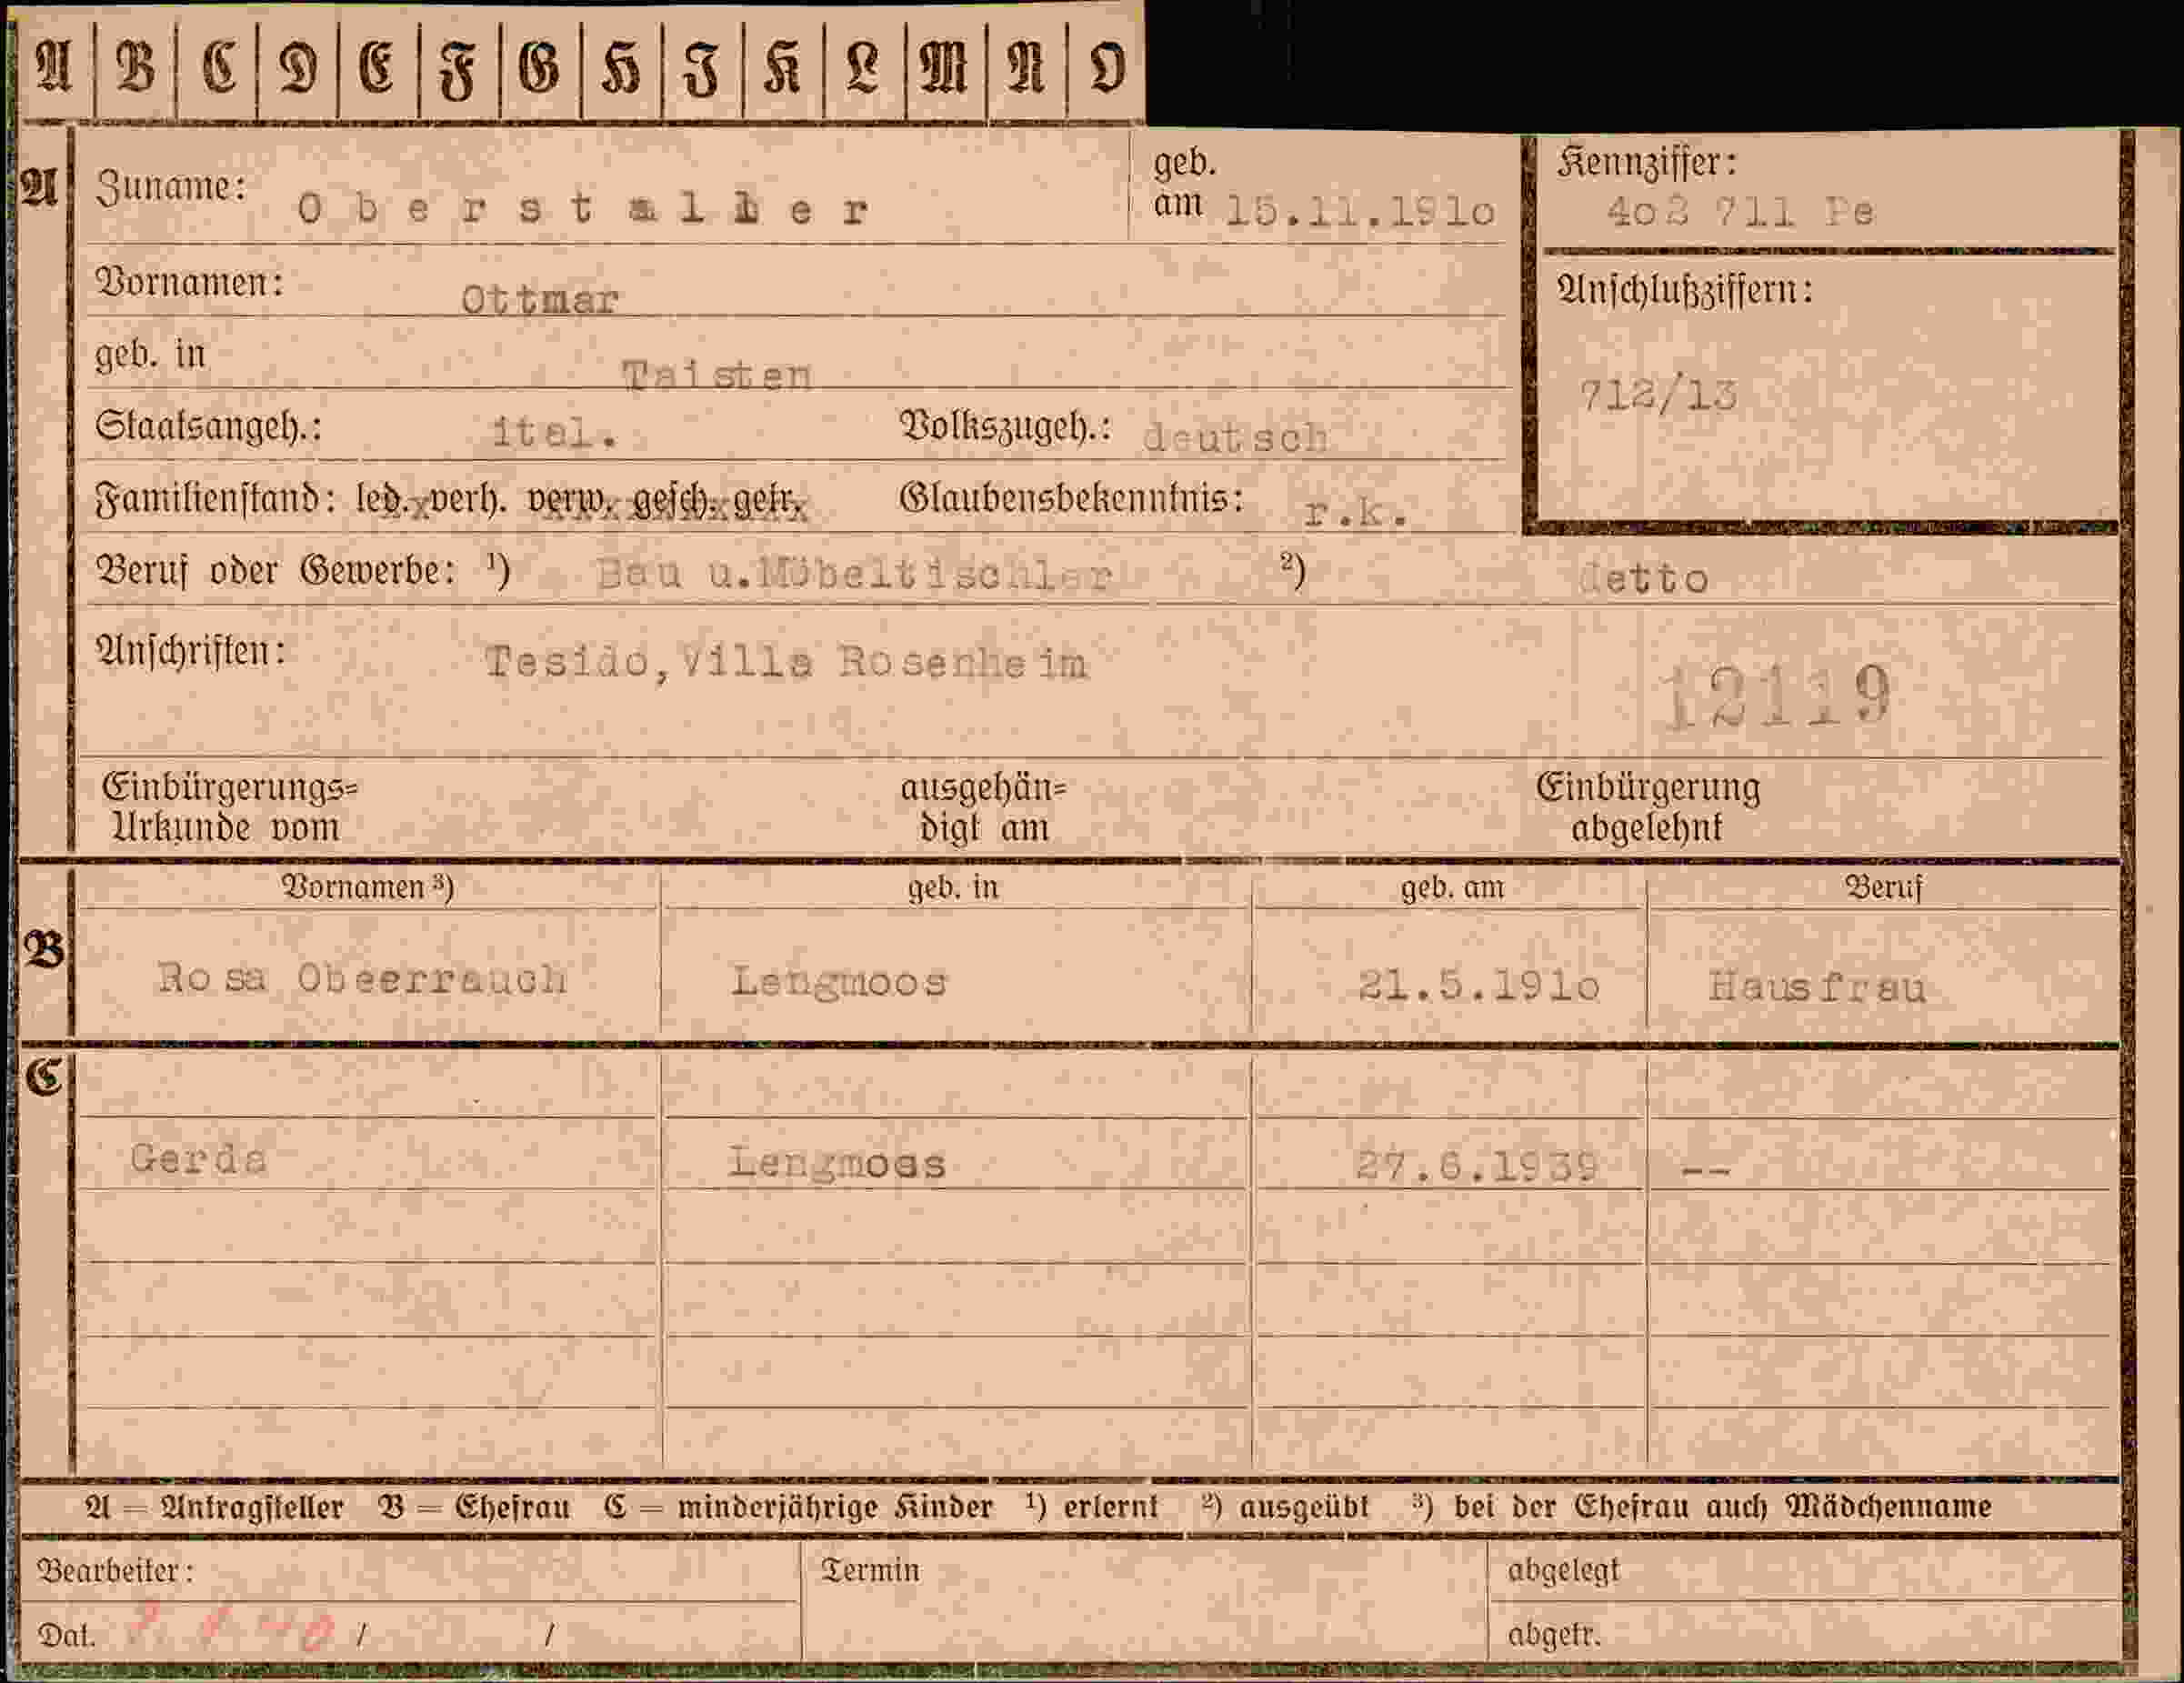 A B C D E F G H I K L M N O
A Zuname: Oberstaller geb. am 15.11.191o Kennziffer: 4o3 711 Pe
Vornamen: Ottmar Anschlußziffern:
geb. in Taisten 712/13
Staatsangeh.: ital. Volkszugeh.: deutsch
Familienstand: led. verh. verw. gesch. getr. Glaubensbekenntnis: r.k.
Beruf oder Gewerbe: ¹) Bau u.Möbeltischler ²) detto
Anschriften: Tesido,Villa Rosenheim
12119
Einbürgerungs= ausgehän= Einbürgerung
Urkunde vom digt am abgelehnt
Vornamen ³) geb. in geb. am Beruf
B Rosa Obeerrauch Lengmoos 21.5.191o Hausfrau
C
Gerda Lengmoos 27.6.1939 --
A = Antragsteller B = Ehefrau C = minderjährige Kinder ¹) erlernt ²) ausgeübt ³) bei der Ehefrau auch Mädchenname
Bearbeiter: Termin abgelegt
Dat. / / abgetr.